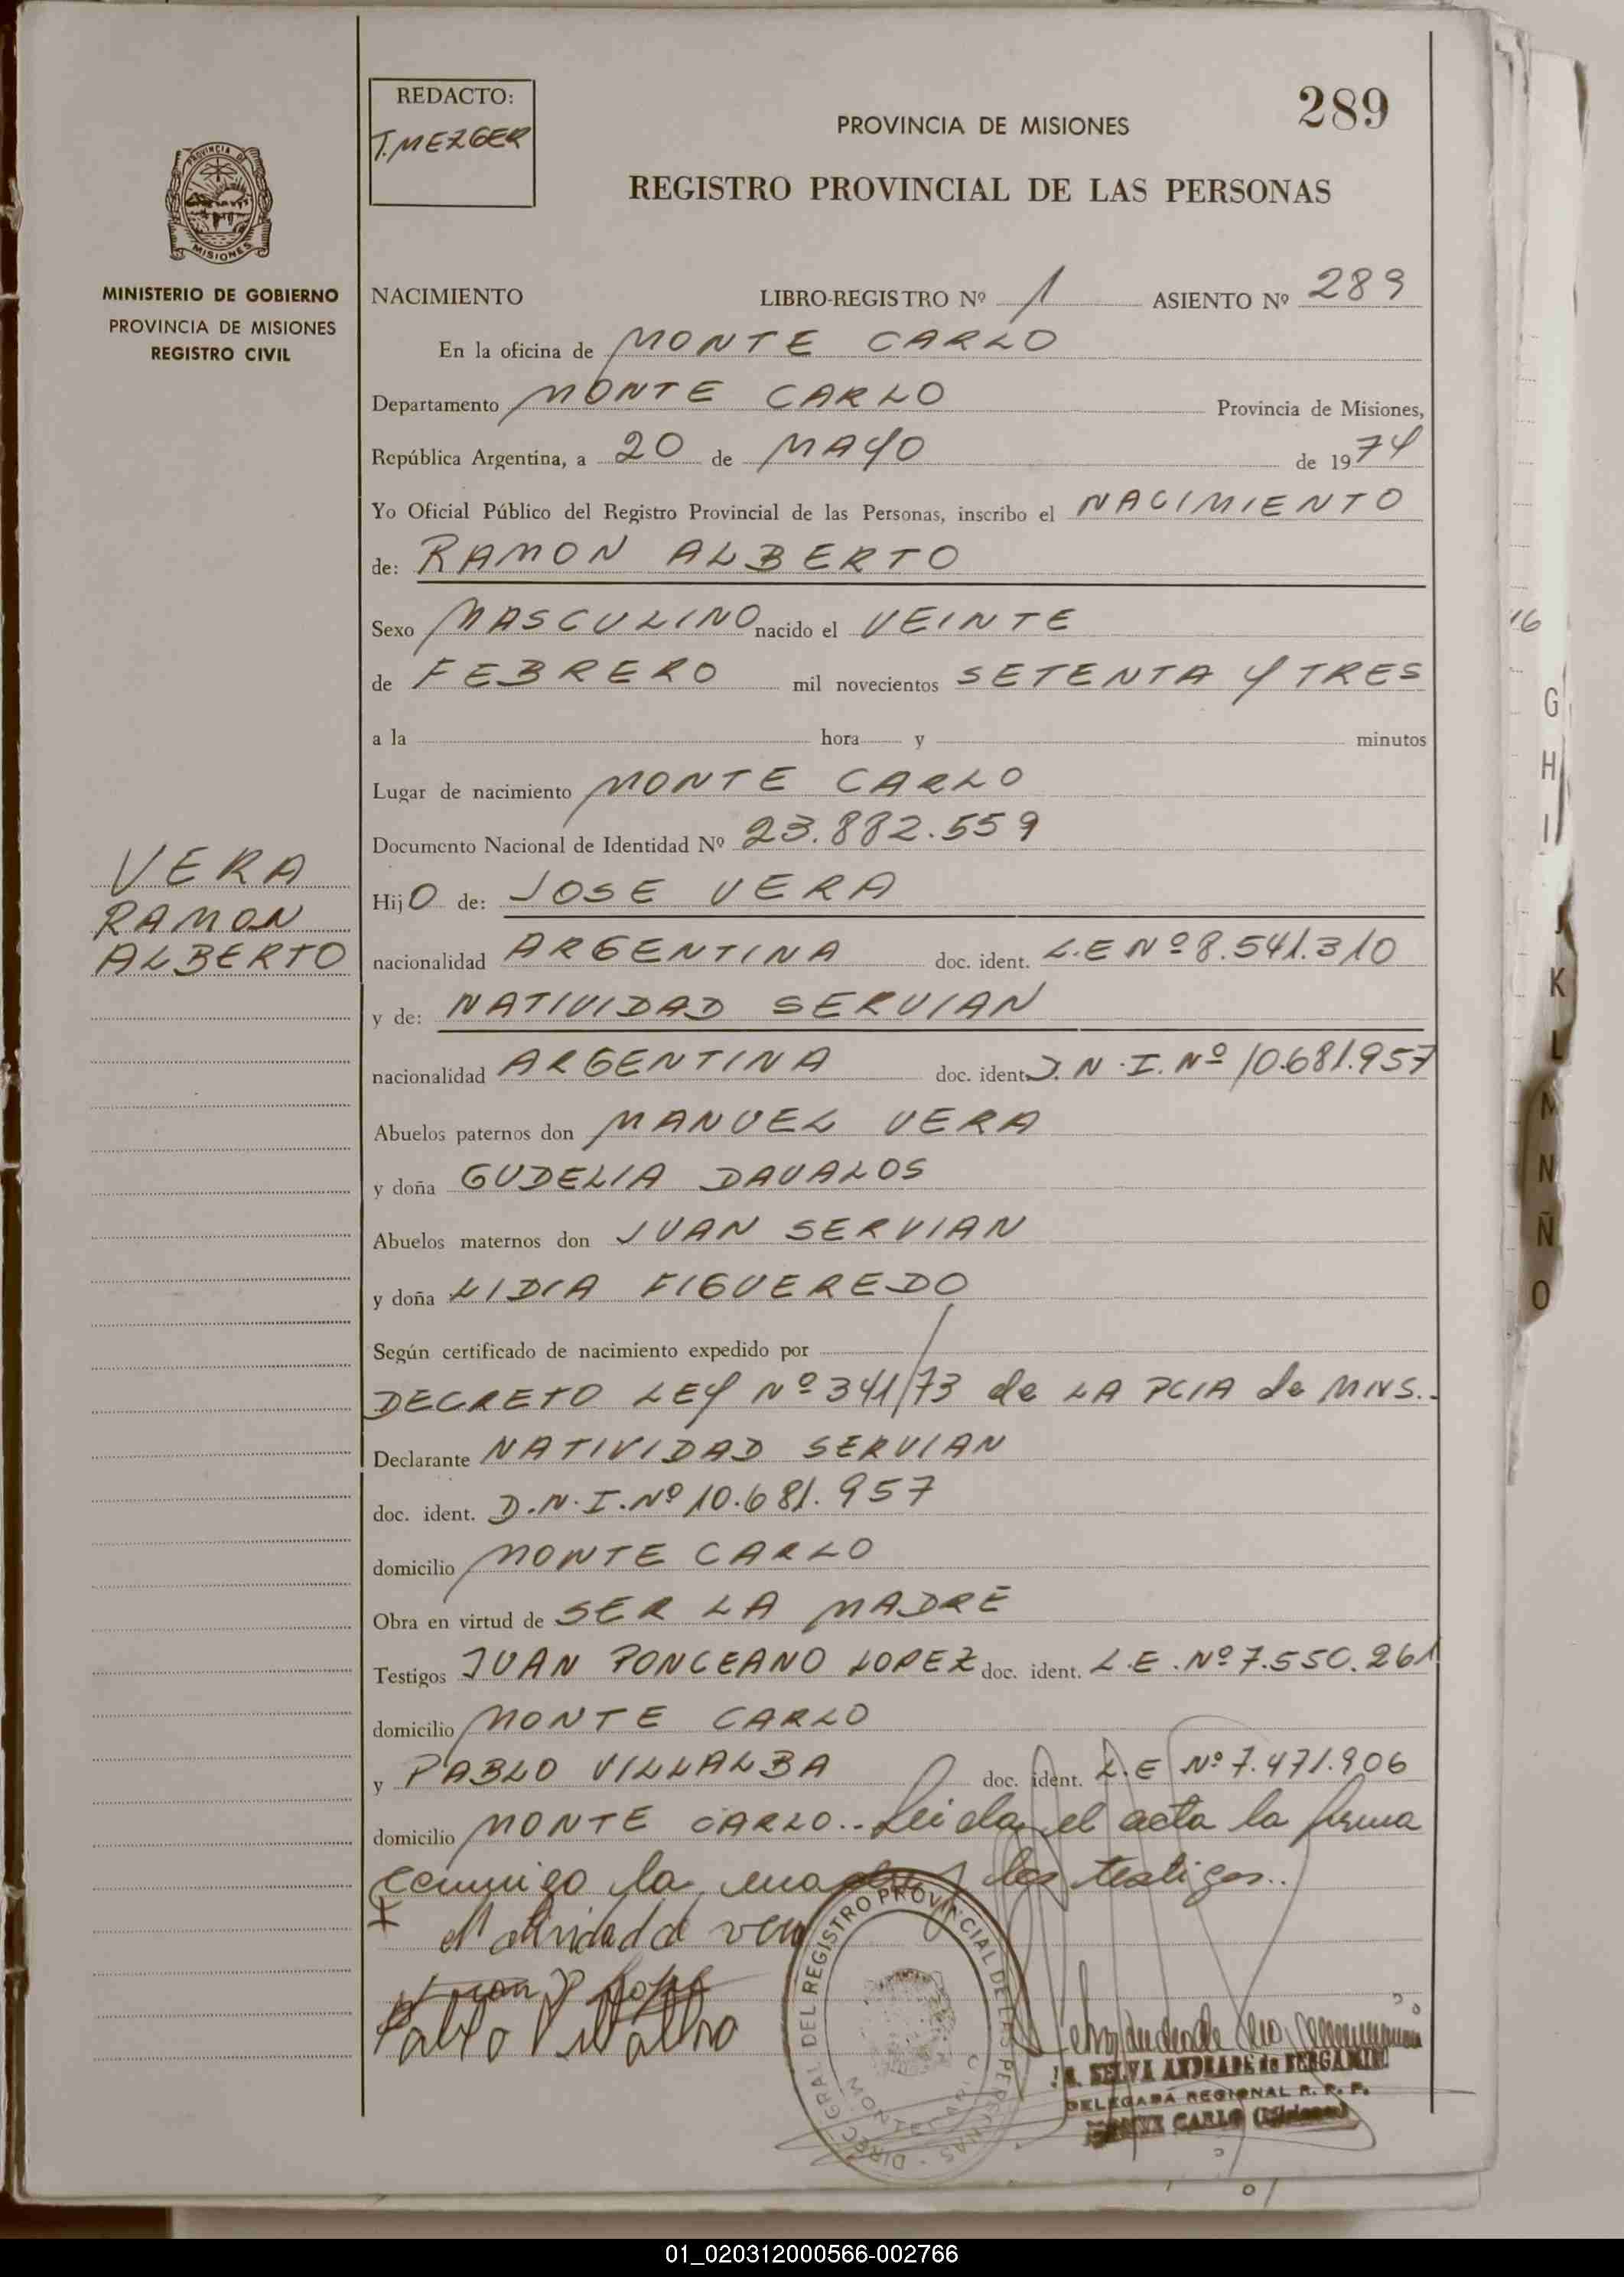 REDACTO:
T. MEZGER
289
PROVINCIA DE MISIONES
REGISTRO PROVINCIAL DE LAS PERSONAS
PROVINCIA DE
MISIONES
MINISTERIO DE GOBIERNO
PROVINCIA DE MISIONES
REGISTRO CIVIL
NACIMIENTO LIBRO-REGISTRO Nº 1 ASIENTO Nº 289
En la oficina de MONTE CARLO
Departamento MONTE CARLO Provincia de Misiones,
República Argentina, a 20 de MAYO de 1974
Yo Oficial Público del Registro Provincial de las Personas, inscribo el NACIMIENTO
de: RAMON ALBERTO
Sexo MASCULINO nacido el VEINTE
de FEBRERO mil novecientos SETENTA Y TRES
a la hora y minutos
Lugar de nacimiento MONTE CARLO
Documento Nacional de Identidad Nº 23.882.559
VERA
RAMON
ALBERTO
HijO de: JOSE VERA
nacionalidad ARGENTINA doc. ident. L.E Nº 8.541.310
y de: NATIVIDAD SERVIAN
nacionalidad ARGENTINA doc. ident. D.N.I. Nº 10.681.957
Abuelos paternos don MANUEL VERA
y doña GUDELIA DAVALOS
Abuelos maternos don JUAN SERVIAN
y doña LIDIA FIGUEREDO
Según certificado de nacimiento expedido por
DECRETO LEY Nº 341/73 de LA PCIA de MNS.
Declarante NATIVIDAD SERVIAN
doc. ident. D.N.I. Nº 10.681.957
domicilio MONTE CARLO
Obra en virtud de SER LA MADRE
Testigos JUAN PONCEANO LOPEZ doc. ident. L.E. Nº 7.550.261
domicilio MONTE CARLO
y PABLO VILLALBA doc. ident. L.E Nº 7.471.906
domicilio MONTE CARLO.. Leida el acta la firma
conmigo la madre y los testigos..
Pablo Villalba
DIREC. GRAL DEL REGISTRO PROVINCIAL DE LAS PERSONAS
MONTECARLO
SELVA ANDRADE de BERGAMINI
DELEGADA REGIONAL R. P. P.
MONTE CARLO (Misiones)
16
G
H
I
J
K
L
M
N
Ñ
O
01_020312000566-002766